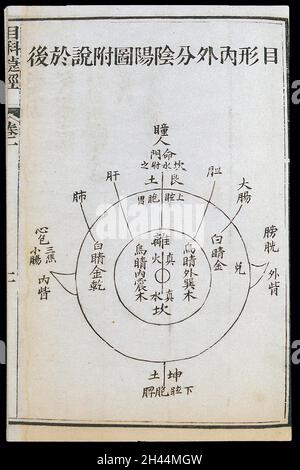 目形內外分陰陽圖附說於後
瞳人
命門
坎水附之
艮土
上眶胞胃
膽
肝
大腸
肺
膀胱
外眥
心包
小腸
三焦
內眥
兌
白睛金
白睛金乾
烏睛外巽木
烏睛內震木
離
真火
真水
坎
坤土
下眶胞脾
目科捷徑
卷一
二
alamy
Image ID: 2H44MGW
www.alamy.com